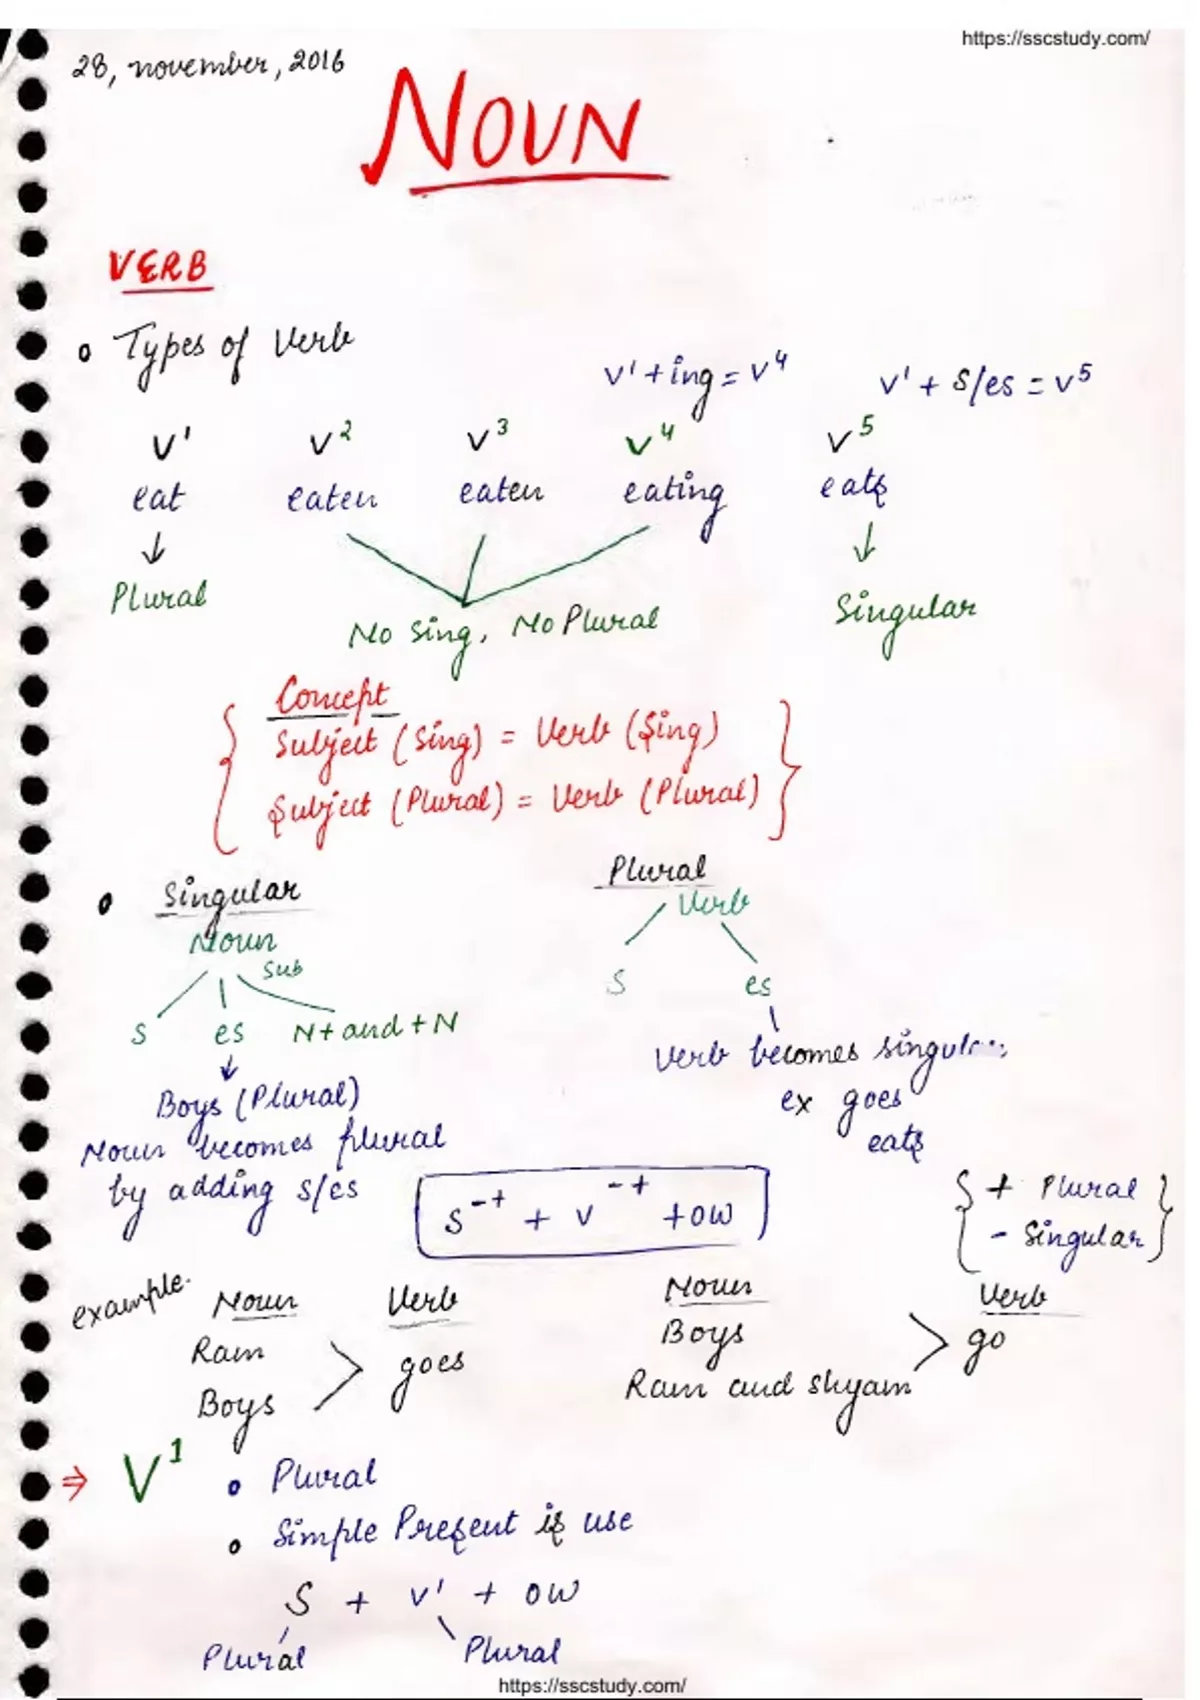 https://sscstudy.com/
28, november, 2016
NOUN
VERB
Types of Verb
V¹ + ing = V⁴ V¹ + s/es = V⁵
V¹ V² V³ V⁴ V⁵
eat eaten eaten eating eats
↓ ↓
Plural No Sing, No Plural Singular
Concept
{ Subject (Sing) = Verb (Sing) }
{ Subject (Plural) = Verb (Plural) }
Singular Plural
Noun Verb
sub
S es N + and + N S es
↓
Boys (Plural) Verb becomes
Noun becomes plural ex goes
by adding s/es eats
S⁻⁺ + V⁻⁺ + OW
{ + Plural }
{ - Singular }
example.
Noun Verb Noun Verb
Ram Boys
> goes > go
Boys Ram and shyam
⇒ V¹ • Plural
• Simple Present is use
S + V¹ + OW
Plural Plural
https://sscstudy.com/